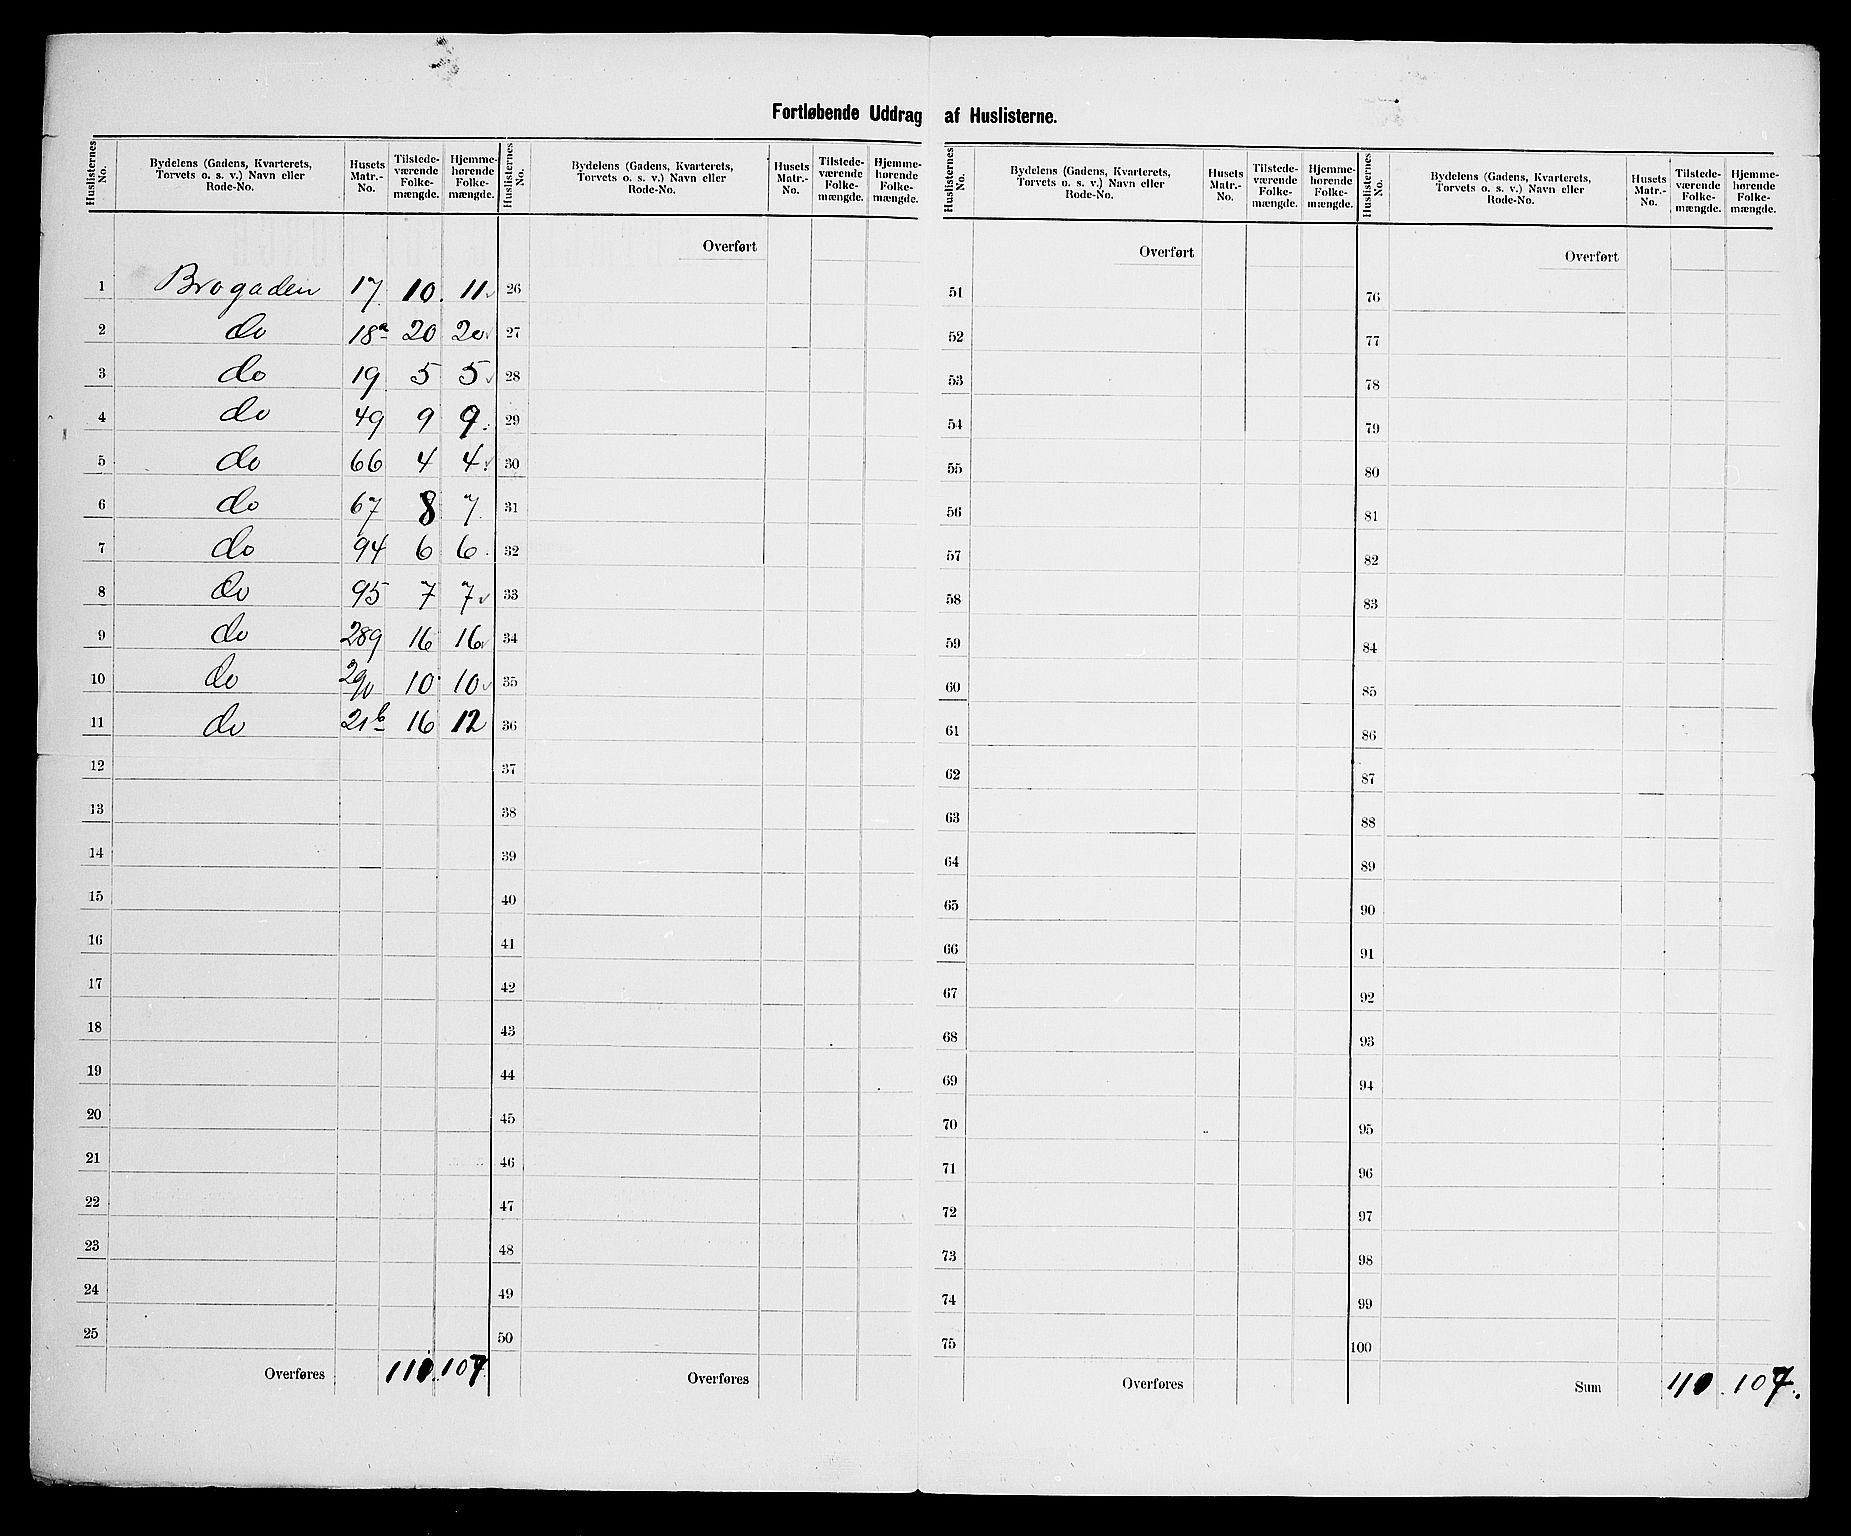 Fortløbende Uddrag af Huslisterne.
Huslisternes No. | Bydelens (Gadens, Kvarterets, Torvets o. s. v.) Navn eller Rode-No. | Husets Matr.-No. | Tilstedeværende Folkemængde. | Hjemmehørende Folkemængde.
1 Brogaden 17 10. 11
2 do 18a 20 20
3 do 19 5 5
4 do 49 9 9.
5 do 66 4 4.
6 do 67 8 7
7 do 94 6 6.
8 do 95 7 7
9 do 289 16 16
10 do 290 10 10
11 do 21b 16 12
12
13
14
15
16
17
18
19
20
21
22
23
24
25
Overføres 110. 107
Huslisternes No. | Bydelens (Gadens, Kvarterets, Torvets o. s. v.) Navn eller Rode-No. | Husets Matr.-No. | Tilstedeværende Folkemængde. | Hjemmehørende Folkemængde.
Overført
26
27
28
29
30
31
32
33
34
35
36
37
38
39
40
41
42
43
44
45
46
47
48
49
50
Overføres
Huslisternes No. | Bydelens (Gadens, Kvarterets, Torvets o. s. v.) Navn eller Rode-No. | Husets Matr.-No. | Tilstedeværende Folkemængde. | Hjemmehørende Folkemængde.
Overført
51
52
53
54
55
56
57
58
59
60
61
62
63
64
65
66
67
68
69
70
71
72
73
74
75
Overføres
Huslisternes No. | Bydelens (Gadens, Kvarterets, Torvets o. s. v.) Navn eller Rode-No. | Husets Matr.-No. | Tilstedeværende Folkemængde. | Hjemmehørende Folkemængde.
Overført
76
77
78
79
80
81
82
83
84
85
86
87
88
89
90
91
92
93
94
95
96
97
98
99
100
Sum 110. 107.